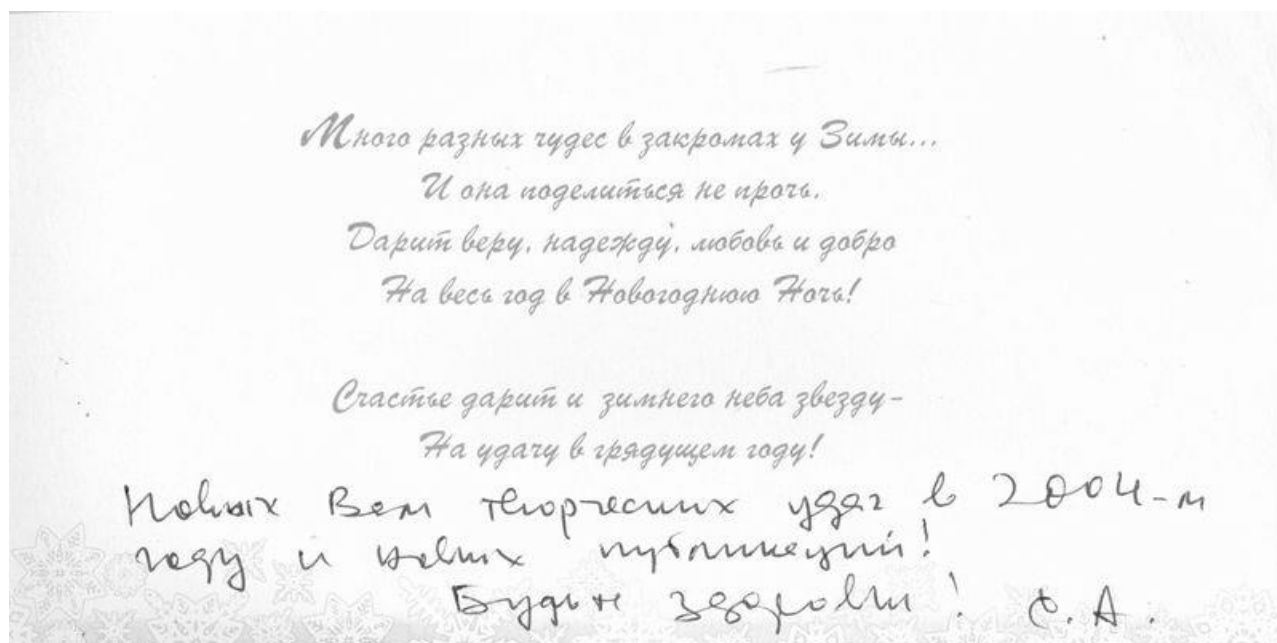 Много разных чудес в закромах у Зимы...
И она поделиться не прочь.
Дарит веру, надежду, любовь и добро
На весь год в Новогоднюю Ночь!
Счастье дарит и зимнего неба звезду-
На удачу в грядущем году!
Новых Вам творческих удач в 2004-м
году и новых публикаций!
Будьте здоровы! С.А.